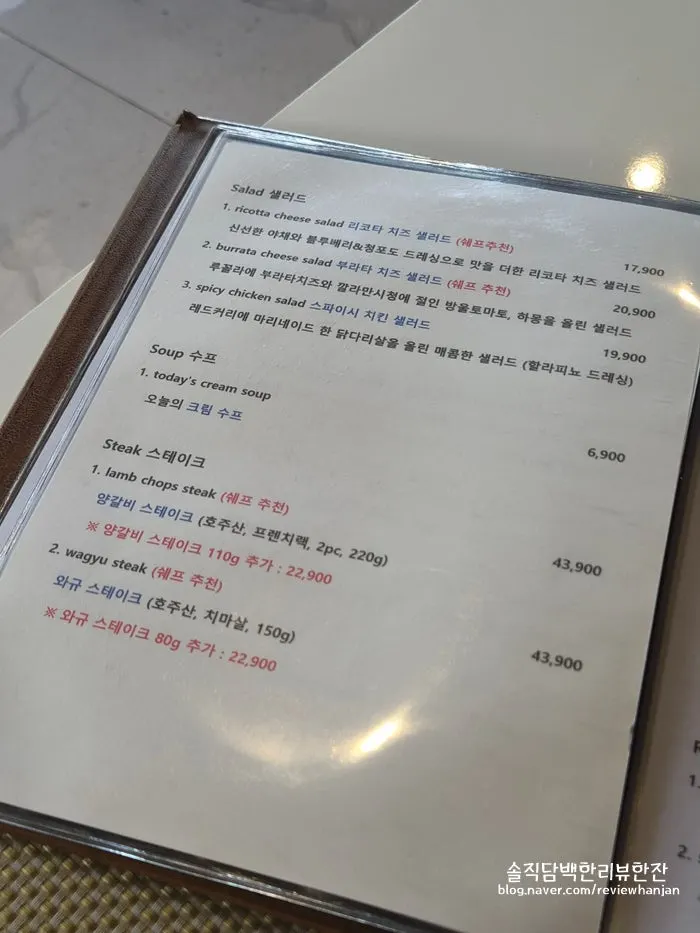 Salad 샐러드
1. ricotta cheese salad 리코타 치즈 샐러드 (쉐프추천)
신선한 야채와 블루베리&청포도 드레싱으로 맛을 더한 리코타 치즈 샐러드 17,900
2. burrata cheese salad 부라타 치즈 샐러드 (쉐프 추천)
루꼴라에 부라타치즈와 깔라만시청에 절인 방울토마토, 하몽을 올린 샐러드 20,900
3. spicy chicken salad 스파이시 치킨 샐러드 19,900
레드커리에 마리네이드 한 닭다리살을 올린 매콤한 샐러드 (할라피뇨 드레싱)
Soup 수프
1. today's cream soup
오늘의 크림 수프 6,900
Steak 스테이크
1. lamb chops steak (쉐프 추천)
양갈비 스테이크 (호주산, 프렌치랙, 2pc, 220g) 43,900
※ 양갈비 스테이크 110g 추가 : 22,900
2. wagyu steak (쉐프 추천)
와규 스테이크 (호주산, 치마살, 150g) 43,900
※ 와규 스테이크 80g 추가 : 22,900
R
1.
2.
솔직담백한리뷰한잔
blog.naver.com/reviewhanjan